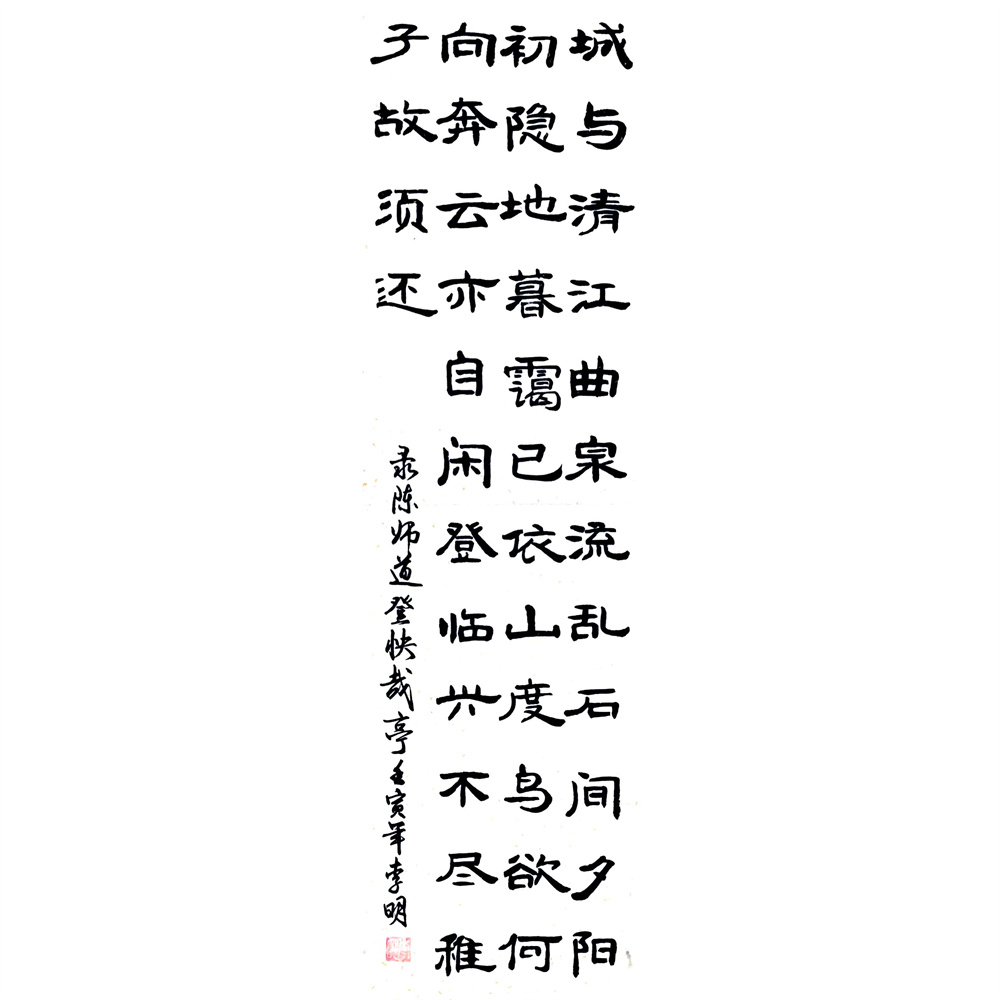 城与清江曲泉流乱石间夕阳
初隐地暮霭已依山度鸟欲何
向奔云亦自闲登临兴不尽稚
子故须还
录陈师道登快哉亭壬寅年李明